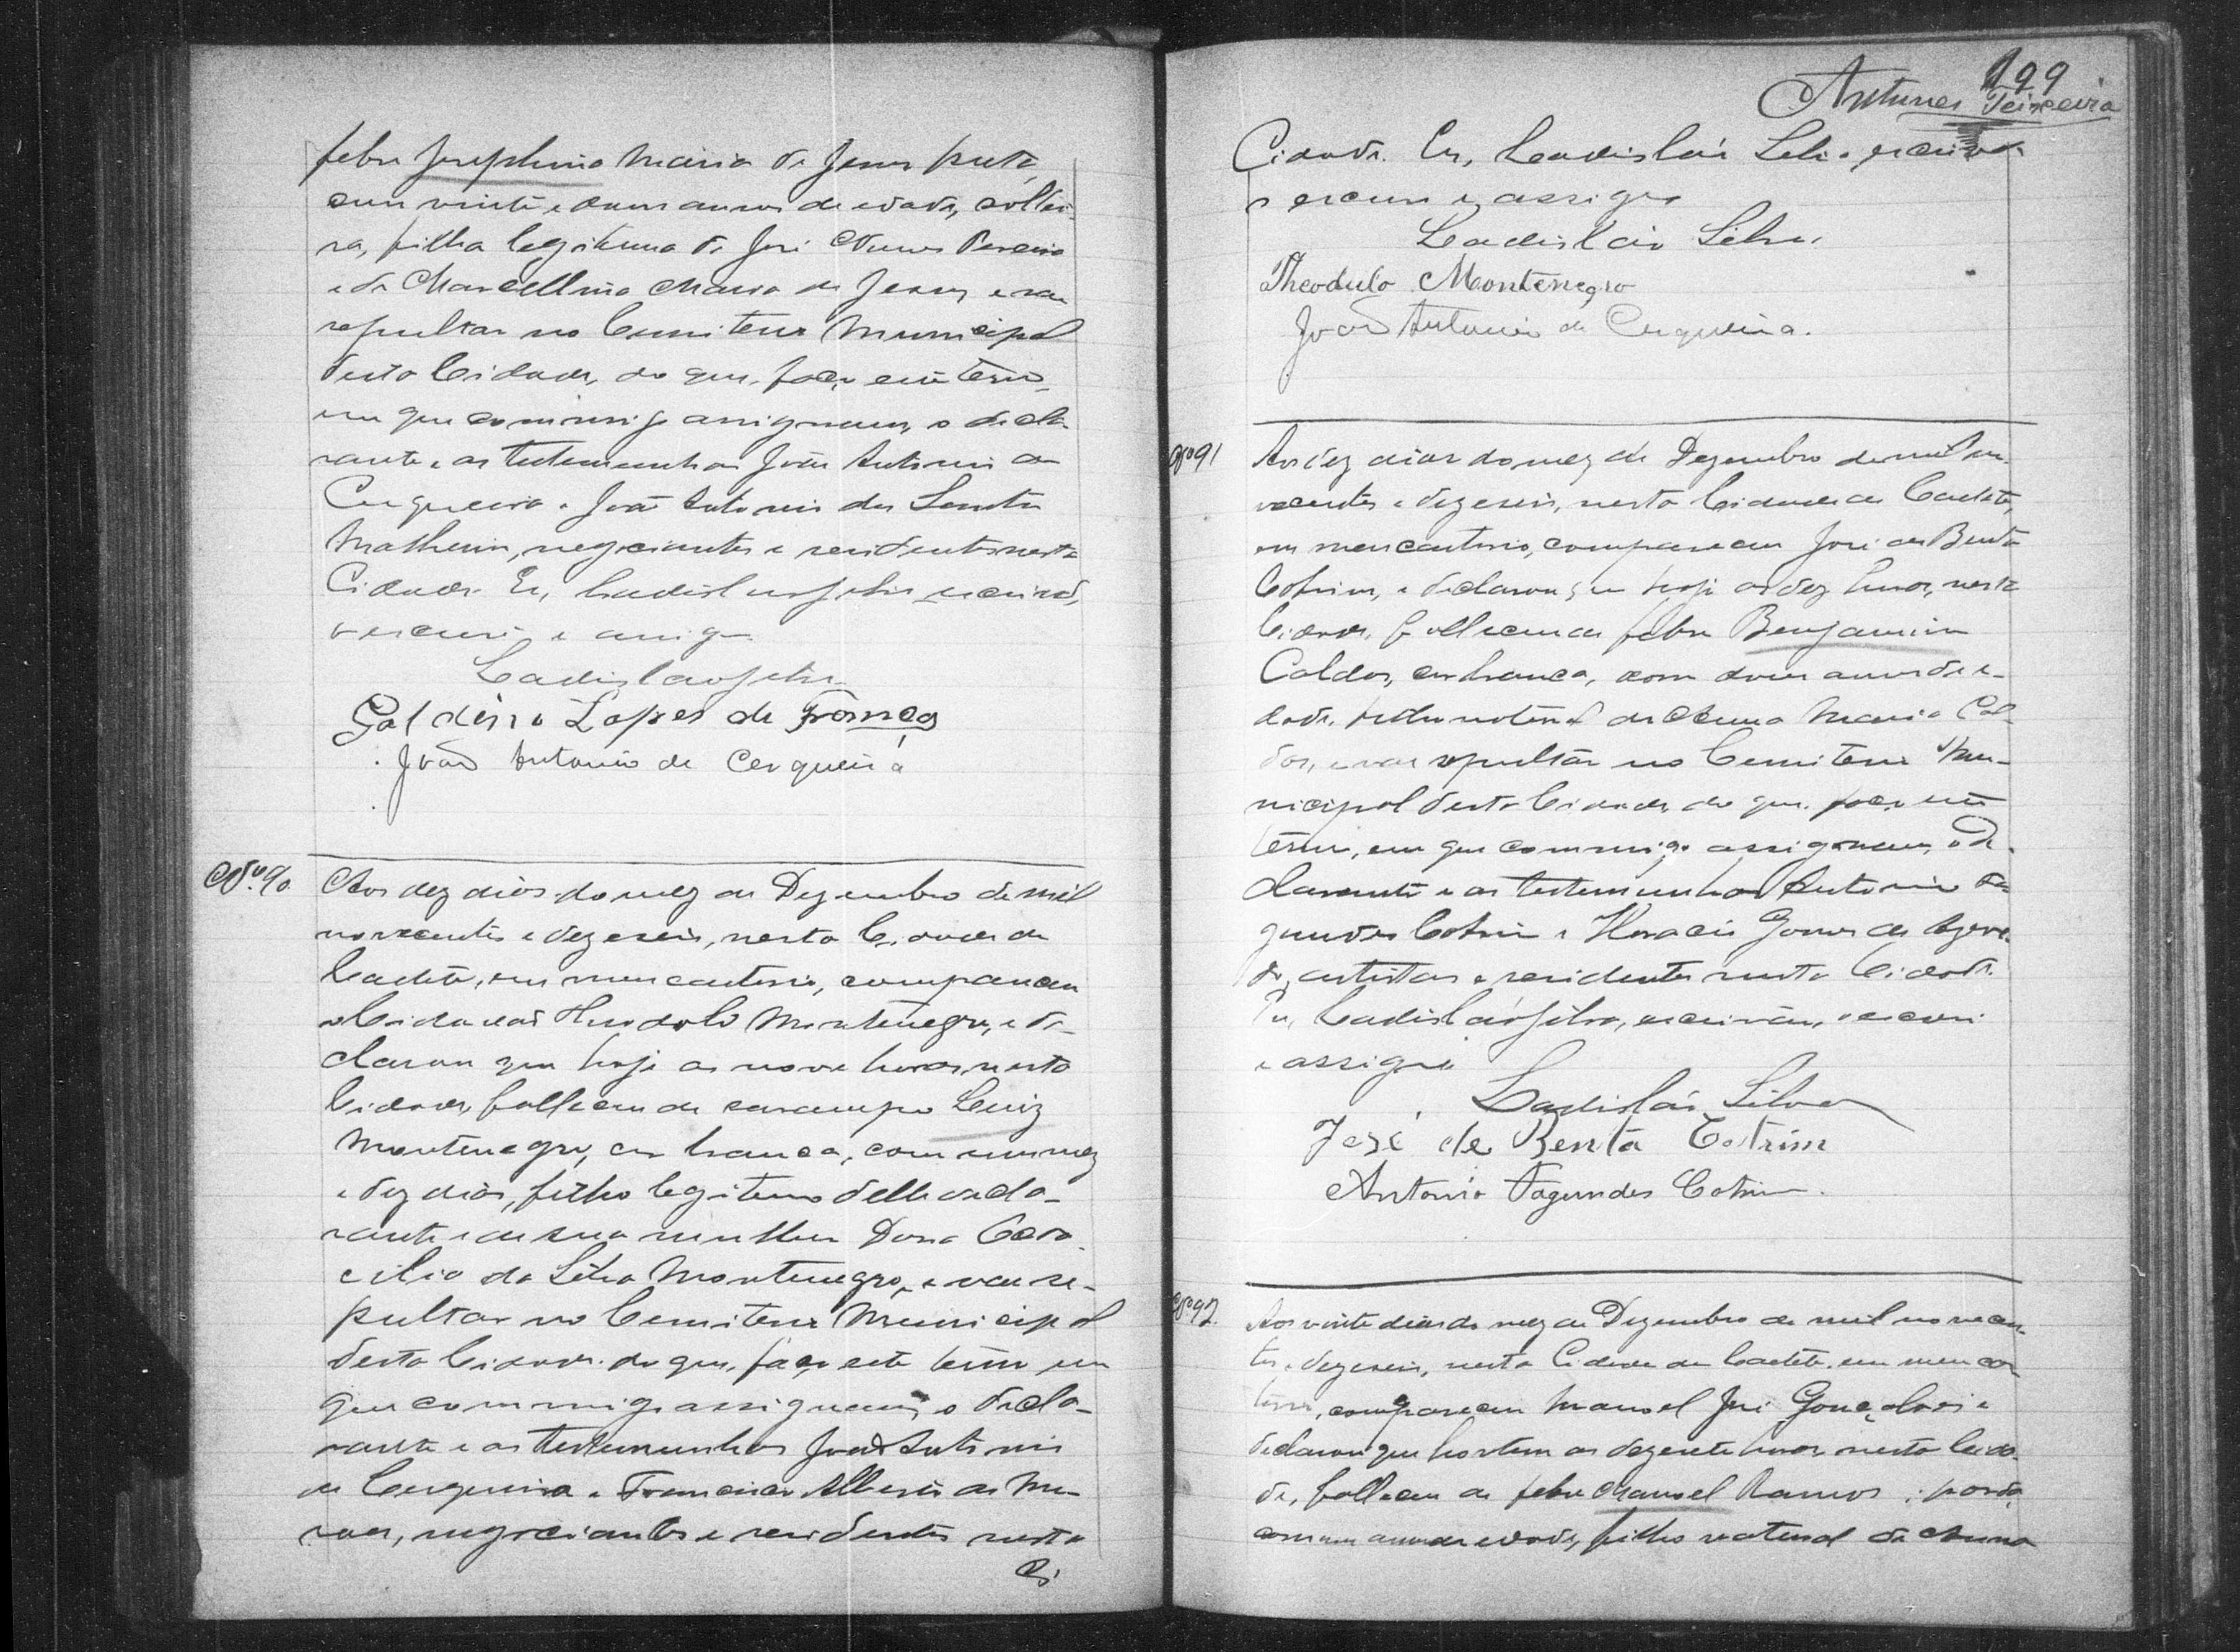 febre Josephina Maria de Jesus, preta,
com vinte e dous annos de edade, soltei-
ra, filha legitima de José Nunes Pereira
e de Marcellina Maria de Jesus e vae
sepultar no Cemiterio Municipal
desta Cidade, do que, faço este termo,
em que commigo assignam, o decla-
rante e as testemunhas João Antonio de
Cerqueira e João Antonio dos Santos
, negociantes e residentes nesta
Cidade. Eu, Ladislau Silva escrivão,
o escrevi e assigno
Ladislau Silva
Galdino Lopes de
João Antonio de Cerqueira
Nº 90.
Aos dez dias do mez de Dezembro de mil
novecentos e dezeseis, nesta Cidade de
Caeteté, em meu cartorio, compareceu
o Cidadão Theodolo Montenegro, e de-
clarou que hoje as nove horas nesta
Cidade, falleceu de sarampo Luiz
Montenegro, cor branca, com um mez
e dez dias, filho legitimo delle decla-
rante e de sua mulher Dona
cilia da Silva Montenegro, e vae se-
pultar no Cemiterio Municipal
desta Cidade. do que, faço este termo em
que commigo assignam, o decla-
rante e as testemunhas João Antonio
de Cerqueira e Francisco Alberto de
, negociantes e residentes nesta
Ci
199
Antunes Teixeira
Cidade. Eu, Ladisláu Silva escrivão
o escrevi e assigno
Ladisláu Silva
Theodulo Montenegro
João Antonio de Cerqueira.
Nº 91
Aos dez dias do mez de Dezembro de mil no-
vecentos e dezeseis, nesta Cidade de Caeteté,
em meu cartorio, compareceu José de Bentа
Cotrim, e declarou que hoje as dez horas, nesta
Cidade, falleceu de febre Benjamim
Caldas, cor branca, com dous annos de e-
dade, filho natural de Anna Maria Cal-
das, e vae sepultar no Cemiterio Mu-
nicipal desta Cidade, do que, faço este
termo, em que commigo assignam, o de-
clarante e as testemunhas Antonio Fa-
gundes Cotrim e Horacio Gomes de Azeve-
do, artistas e residentes nesta Cidade.
Eu, Ladisláu Silva, escrivão, o escrevi
e assigno
Ladisláu Silva
José de Benta Cotrim
Antonio Fagundes Cotrim.
Nº 92.
Aos vinte dias do mez de Dezembro de mil novecen-
tos e dezeseis, nesta Cidade de Caeteté, em meu car-
torio, compareceu Manoel José Gonçalves e
declarou que hontem as dezesete horas nesta Cida-
de, falleceu de febre Manoel Ramos, pardo,
com um anno de edade, filho natural de Anna